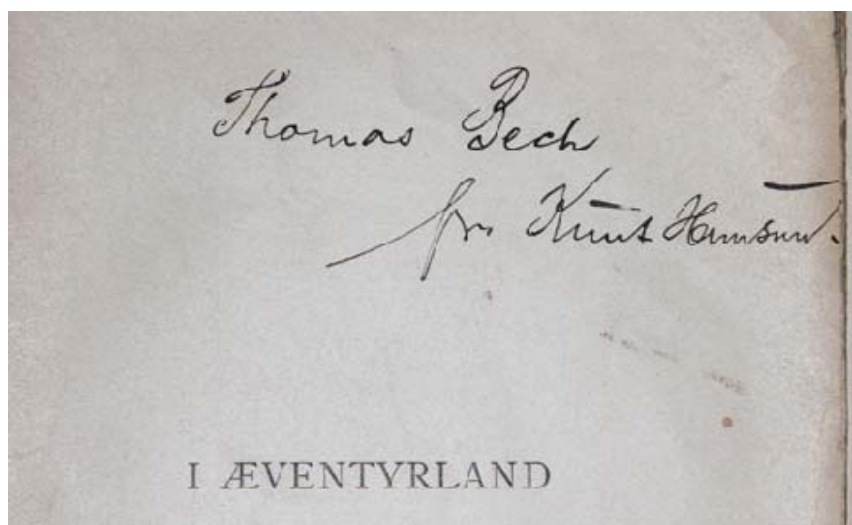 Thomas Bech
fra Knut Hamsun.
I ÆVENTYRLAND